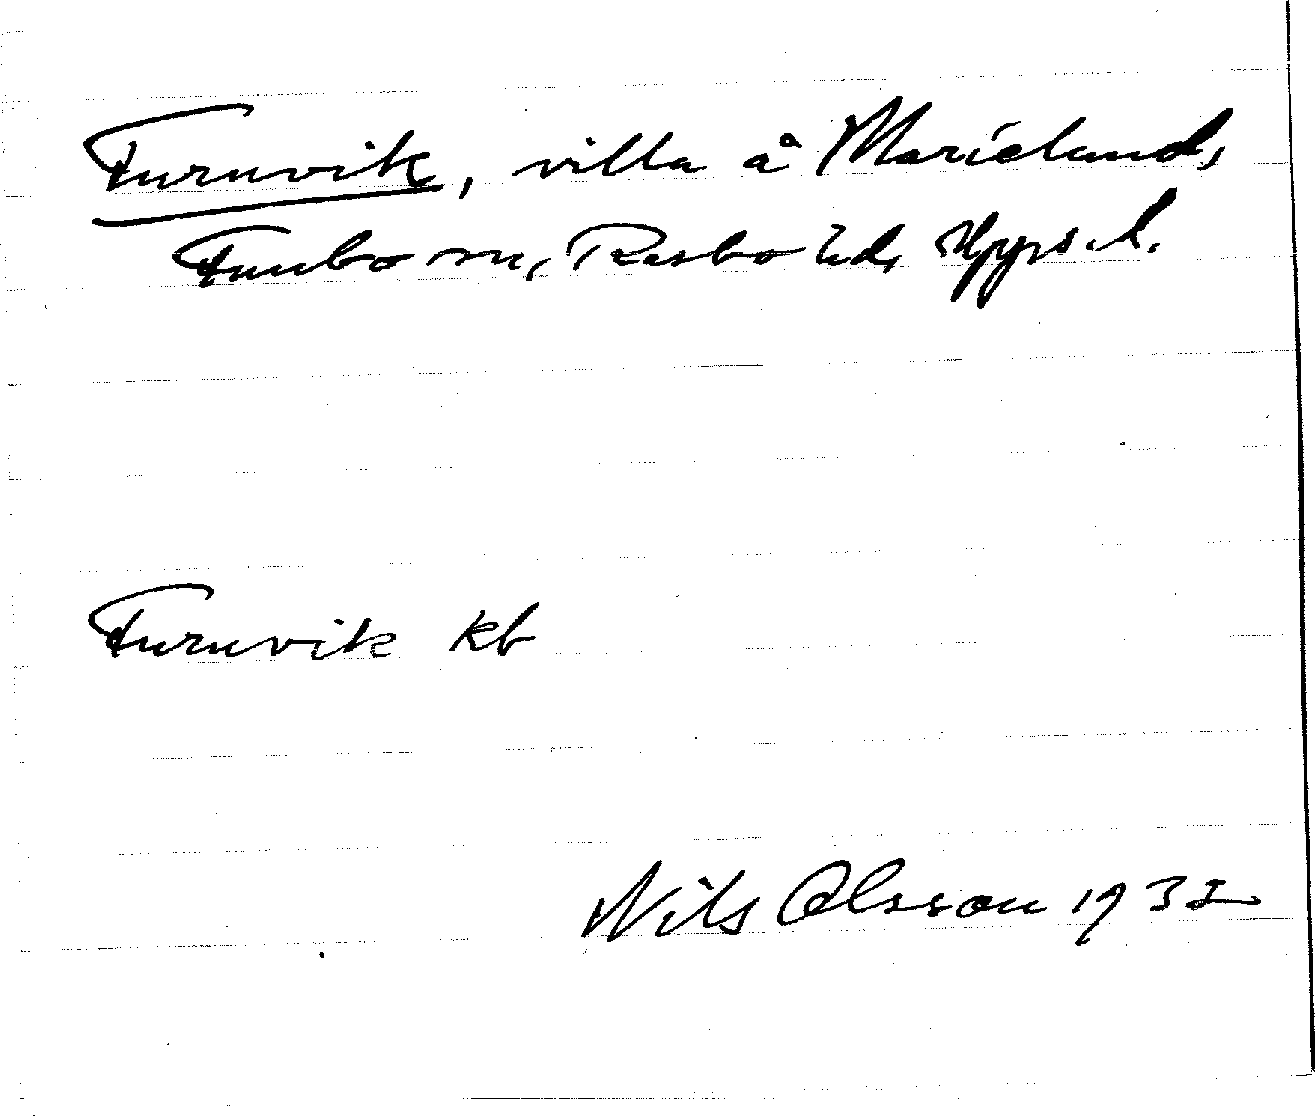 Furuvik, villa å Marieland,
Funbo sn, Rasbo hd, Upps. l.
Furuvik kb
Nils Olsson 1932